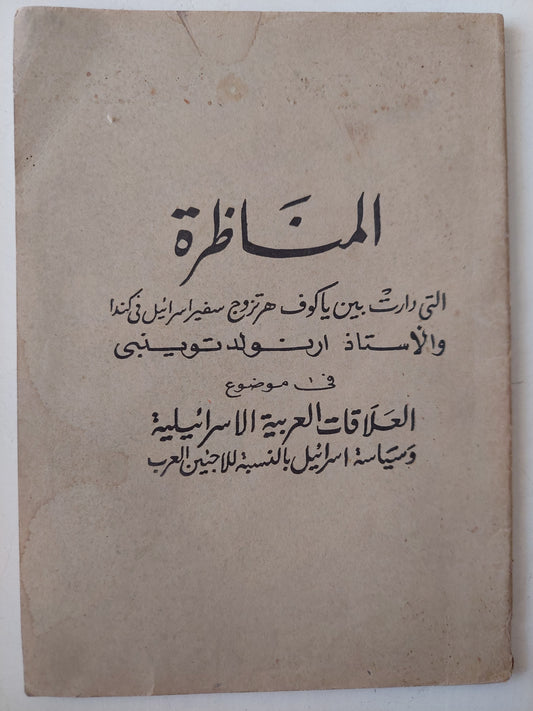 المناظرة
التى دارت بين ياكوف هرتزوج سفير اسرائيل فى كندا
والاستاذ ارنولد توينبى
فى موضوع
العلاقات العربية الاسرائيلية
وسياسة اسرائيل بالنسبة للاجئين العرب